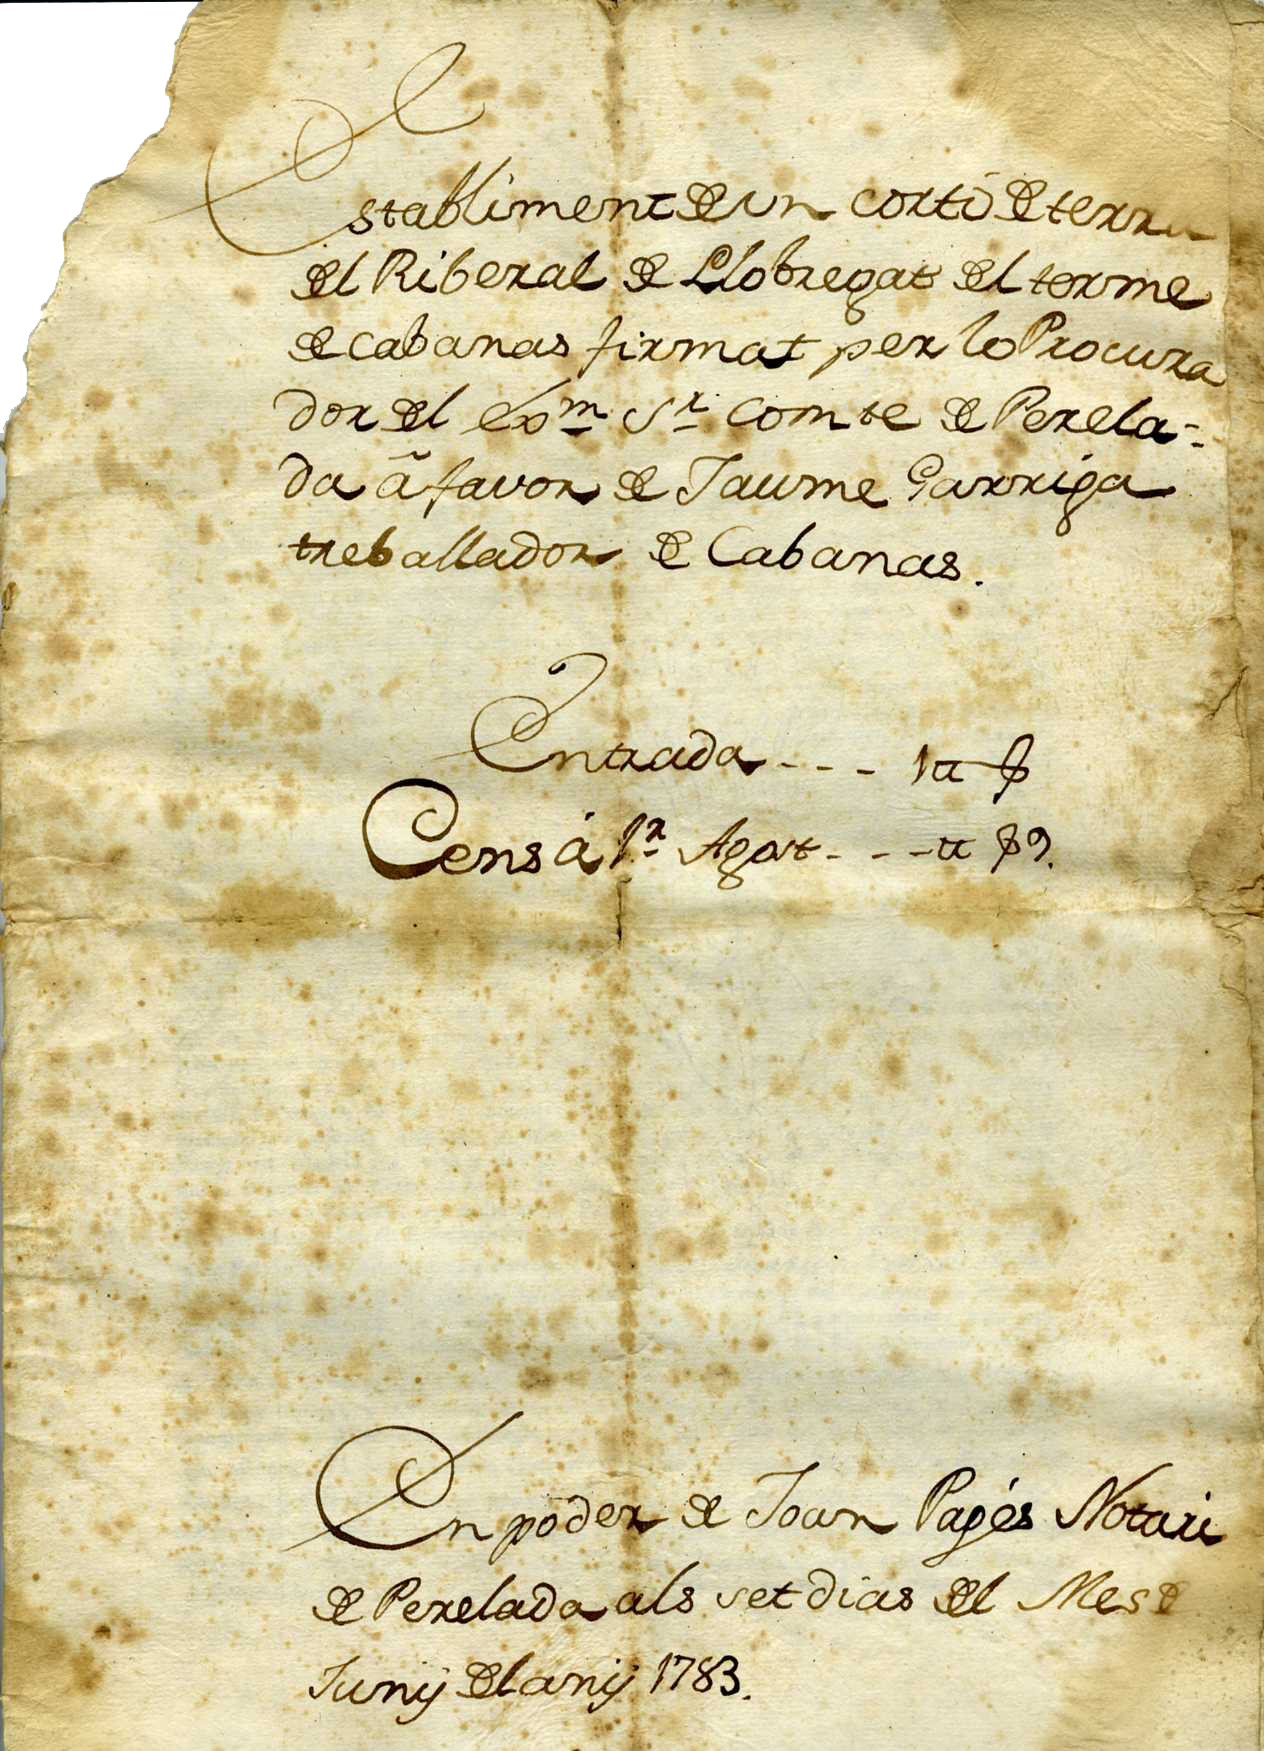 Establiment de un cortó de terra
del Riberal de Llobregat del terme
de Cabanas firmat per lo Procura
dor del Exm Sr Comte de Perela-
da â favor de Jaume Garriga
treballador de Cabanas.
Entrada - - - 1 ₶ ẞ
Cens á 1r Agost - - - ₶ ẞ 9.
En poder de Joan Pagés Notari
de Perelada als set dias del Mes de
Juny del any 1783.